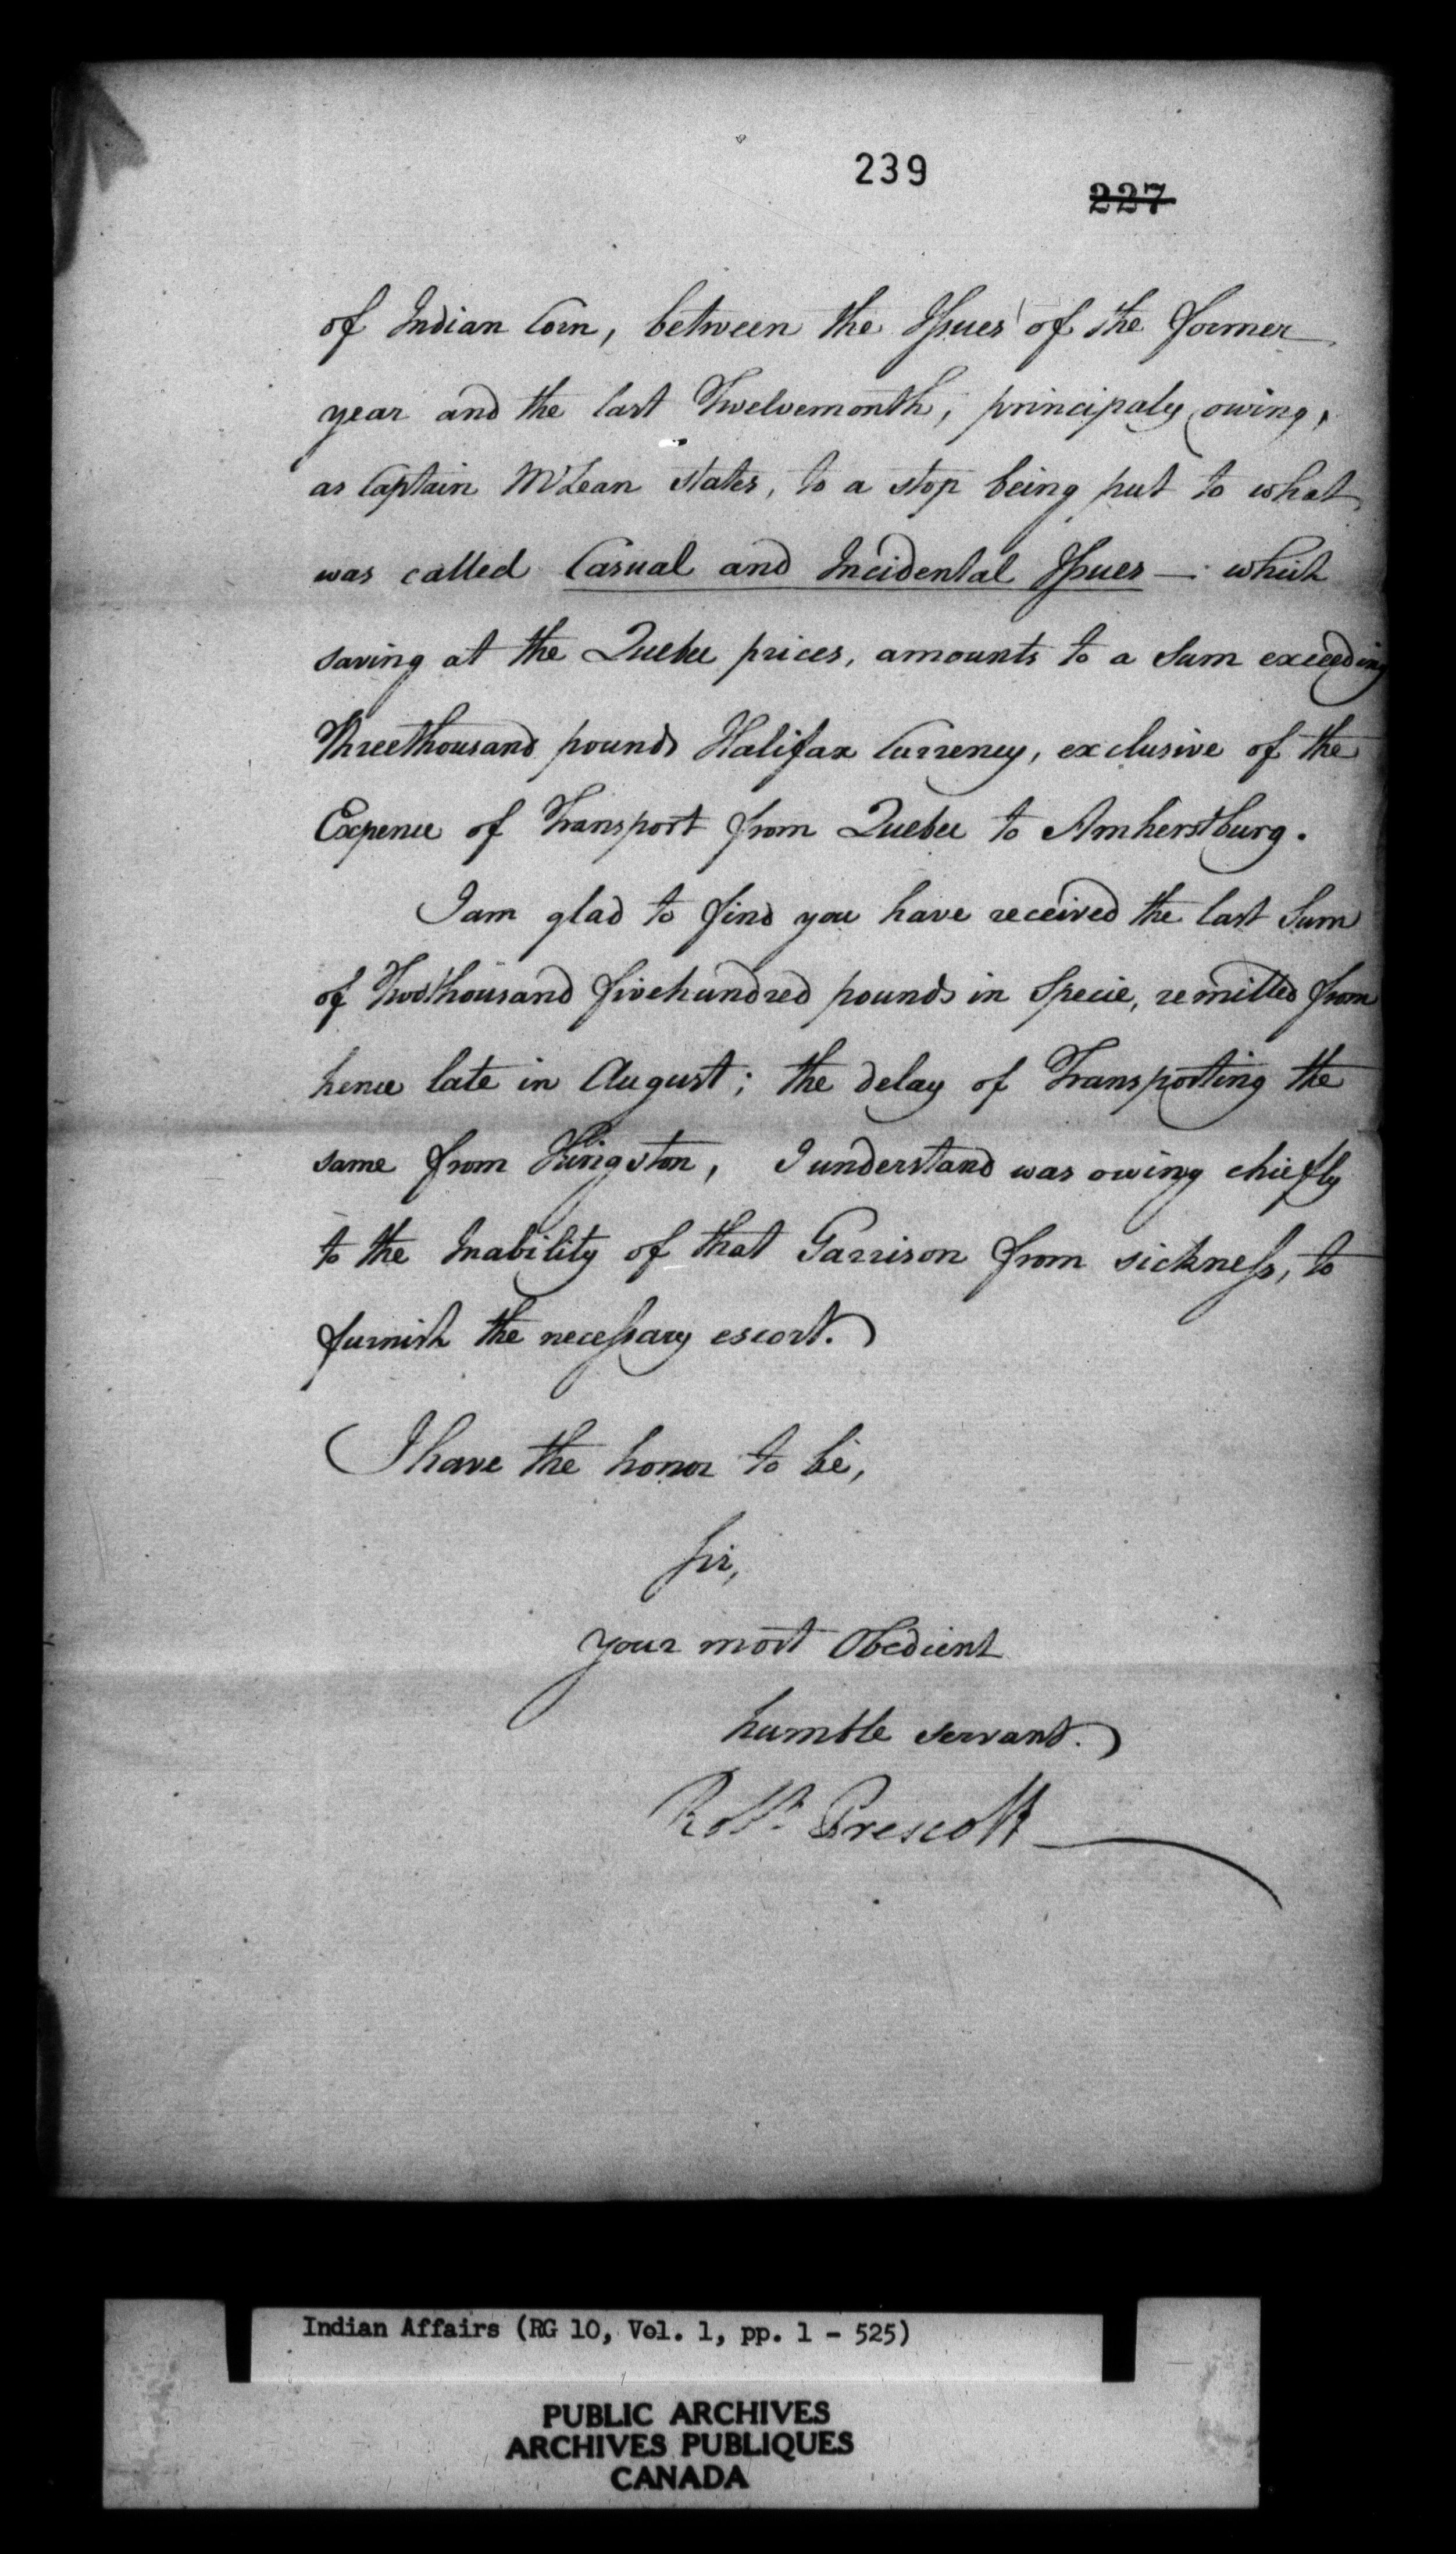 239
227
of Indian Corn, between the Issues of the former
year and the last Twelvemonth, principaly owing,
as Captain McLean states, to a stop being put to what
was called Casual and Incidental Issues — which
saving at the Quebec prices, amounts to a Sum exceeding
Threethousand pounds Halifax Currency, exclusive of the
Expence of Transport from Quebec to Amherstburg.
I am glad to find you have received the last Sum
of Twothousand fivehundred pounds in Specie, remitted from
hence late in August; the delay of Transporting the
same from Kingston, I understand was owing chiefly
to the Inability of that Garrison from sickness, to
furnish the necessary escort.
I have the honor to be,
Sir,
your most Obedient
humble servant.
Robt. Prescott
Indian Affairs (RG 10, Vol. 1, pp. 1 - 525)
PUBLIC ARCHIVES
ARCHIVES PUBLIQUES
CANADA